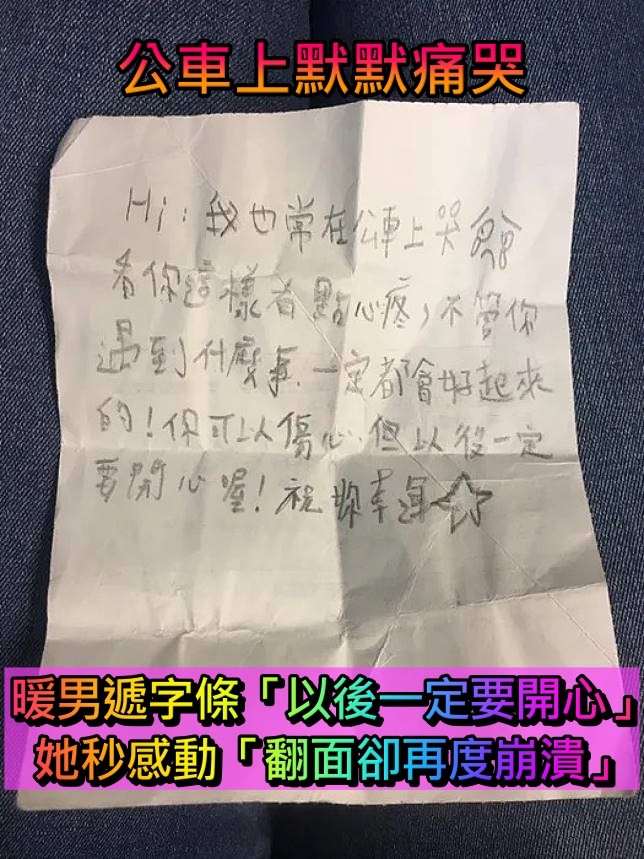 公車上默默痛哭
Hi：我也常在公車上哭
看你這樣有點心疼，不管你
遇到什麼事，一定都會好起來
的！你可以傷心，但以後一定
要開心喔！祝妳幸運☆
暖男遞字條「以後一定要開心」
她秒感動「翻面卻再度崩潰」